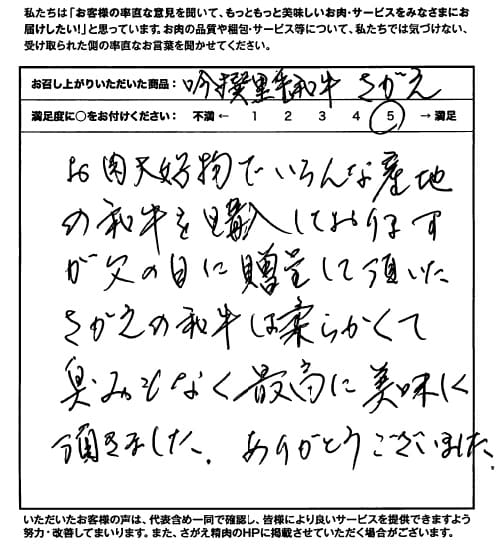 私たちは「お客様の率直な意見を聞いて、もっともっと美味しいお肉・サービスをみなさまにお
届けしたい!」と思っています。お肉の品質や梱包・サービス等について、私たちでは気づけない、
受け取られた側の率直なお言葉を聞かせてください。
お召し上がりいただいた商品: 吟撰黒毛和牛 さがえ
満足度に○をお付けください: 不満 ← 1 2 3 4 5 → 満足
お肉大好物でいろんな産地
の和牛を購入しております
が父の日に贈呈して頂いた
さがえの和牛は柔らかくて
臭みもなく最高に美味しく
頂きました。ありがとうございました。
いただいたお客様の声は、代表含め一同で確認し、皆様により良いサービスを提供できますよう
努力・改善してまいります。また、さがえ精肉のHPに掲載させていただく場合がございます。